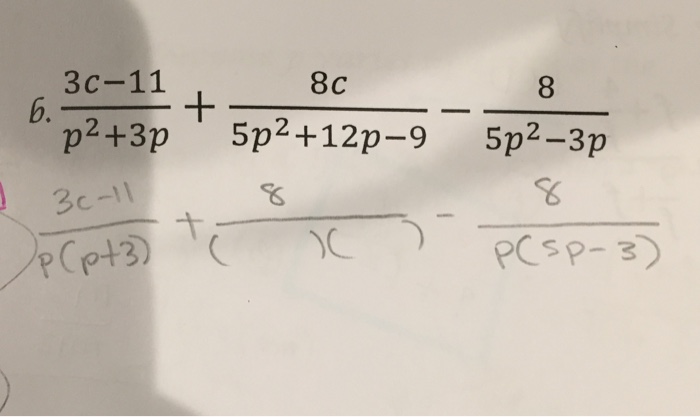 6. (3c-11)/(p²+3p) + 8c/(5p²+12p-9) - 8/(5p²-3p)
(3c-11)/(p(p+3)) + 8/(( )( )) - 8/(p(5p-3))